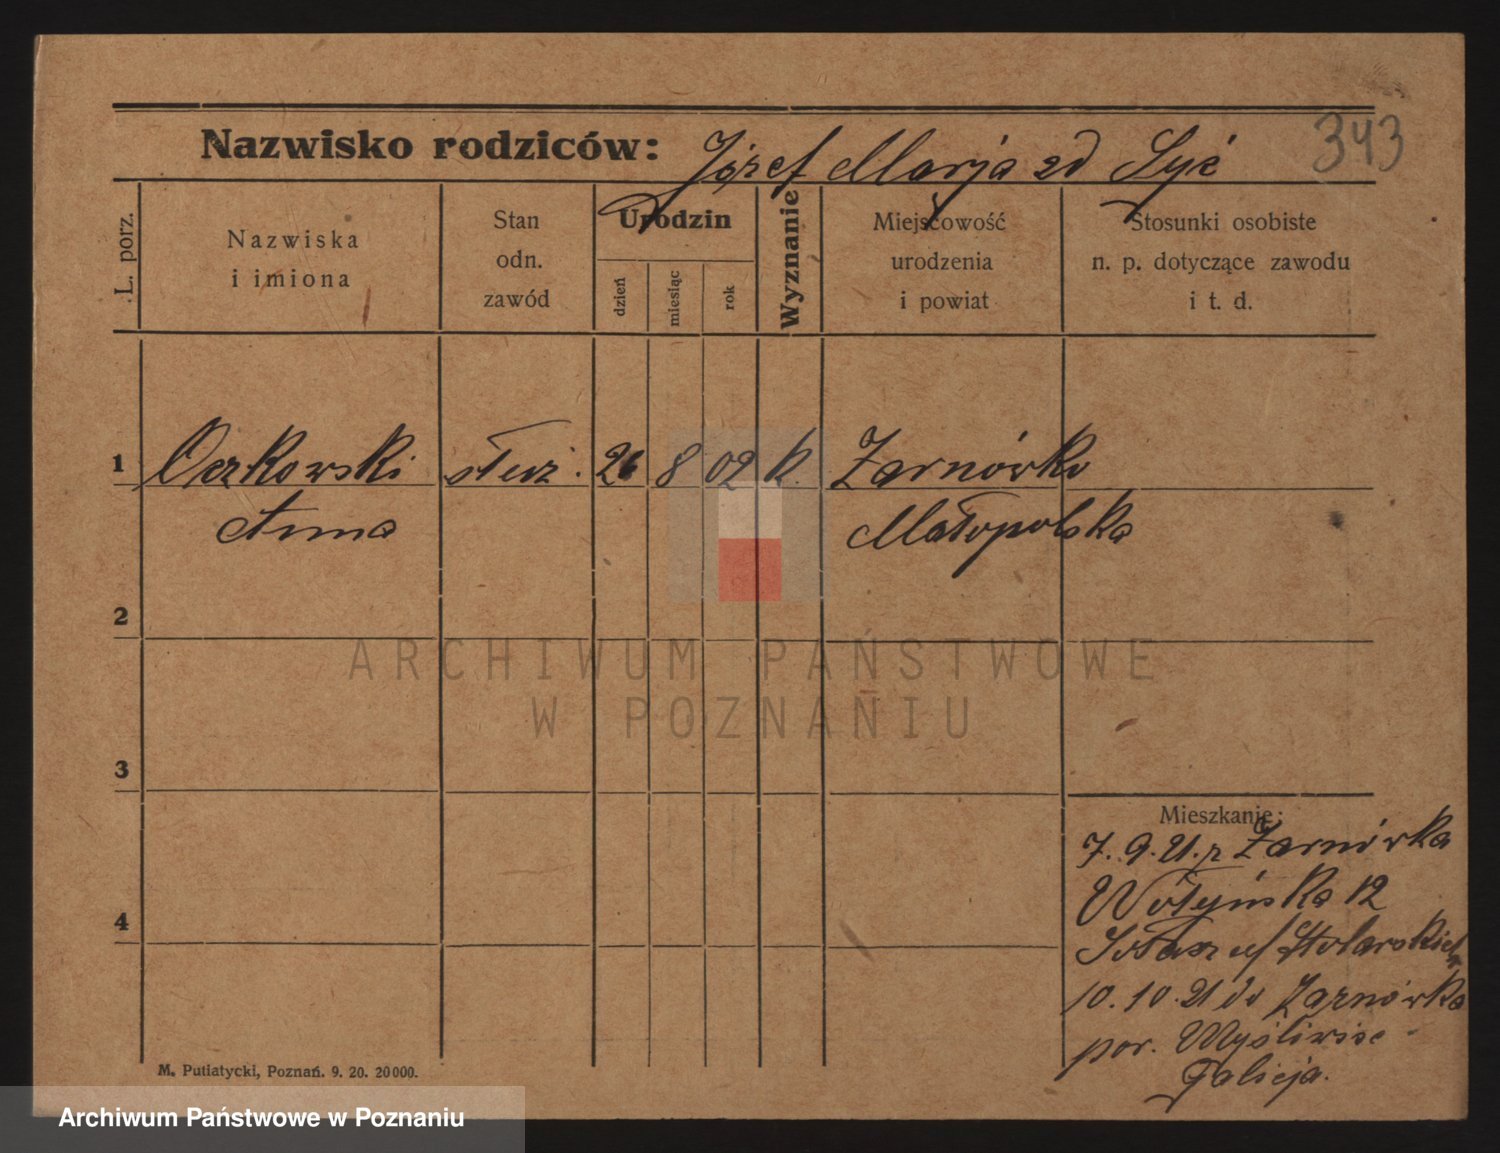 343
Nazwisko rodziców: Józef Marja zd Syć
L. porz.
Nazwiska
i imiona
Stan
odn.
zawód
Urodzin
dzień
miesiąc
rok
Wyznanie
Miejscowość
urodzenia
i powiat
Stosunki osobiste
n. p. dotyczące zawodu
i t. d.
1 Oczkowski służ. 26 8 02 k. Żarnówka
Anna Małopolska
2
3
4
Mieszkanie:
7. 9. 21. z Żarnówka
Wołyńska 12
Stolarskich
10. 10. 21 do Żarnówka
por. Myślenice
Galicja.
M. Putiatycki, Poznań. 9. 20. 20 000.
ARCHIWUM PAŃSTWOWE
W POZNANIU
Archiwum Państwowe w Poznaniu